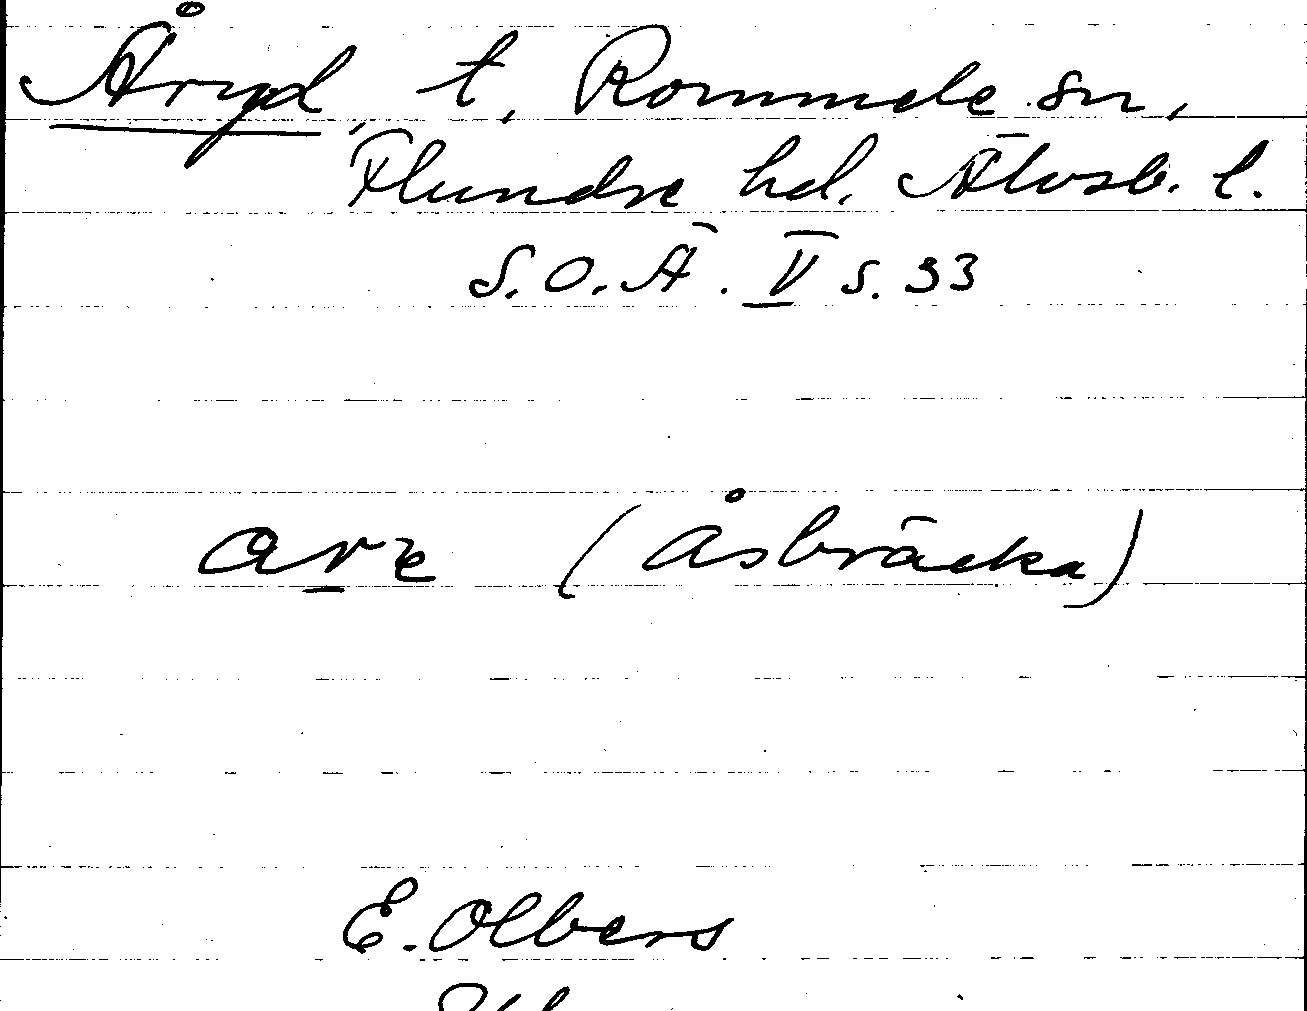 Åryd, t, Rommele sn,
Flundre hd. Älvsb. l.
S.O.Ä. V s. 33
(Åsbräcka)
E. Olbers